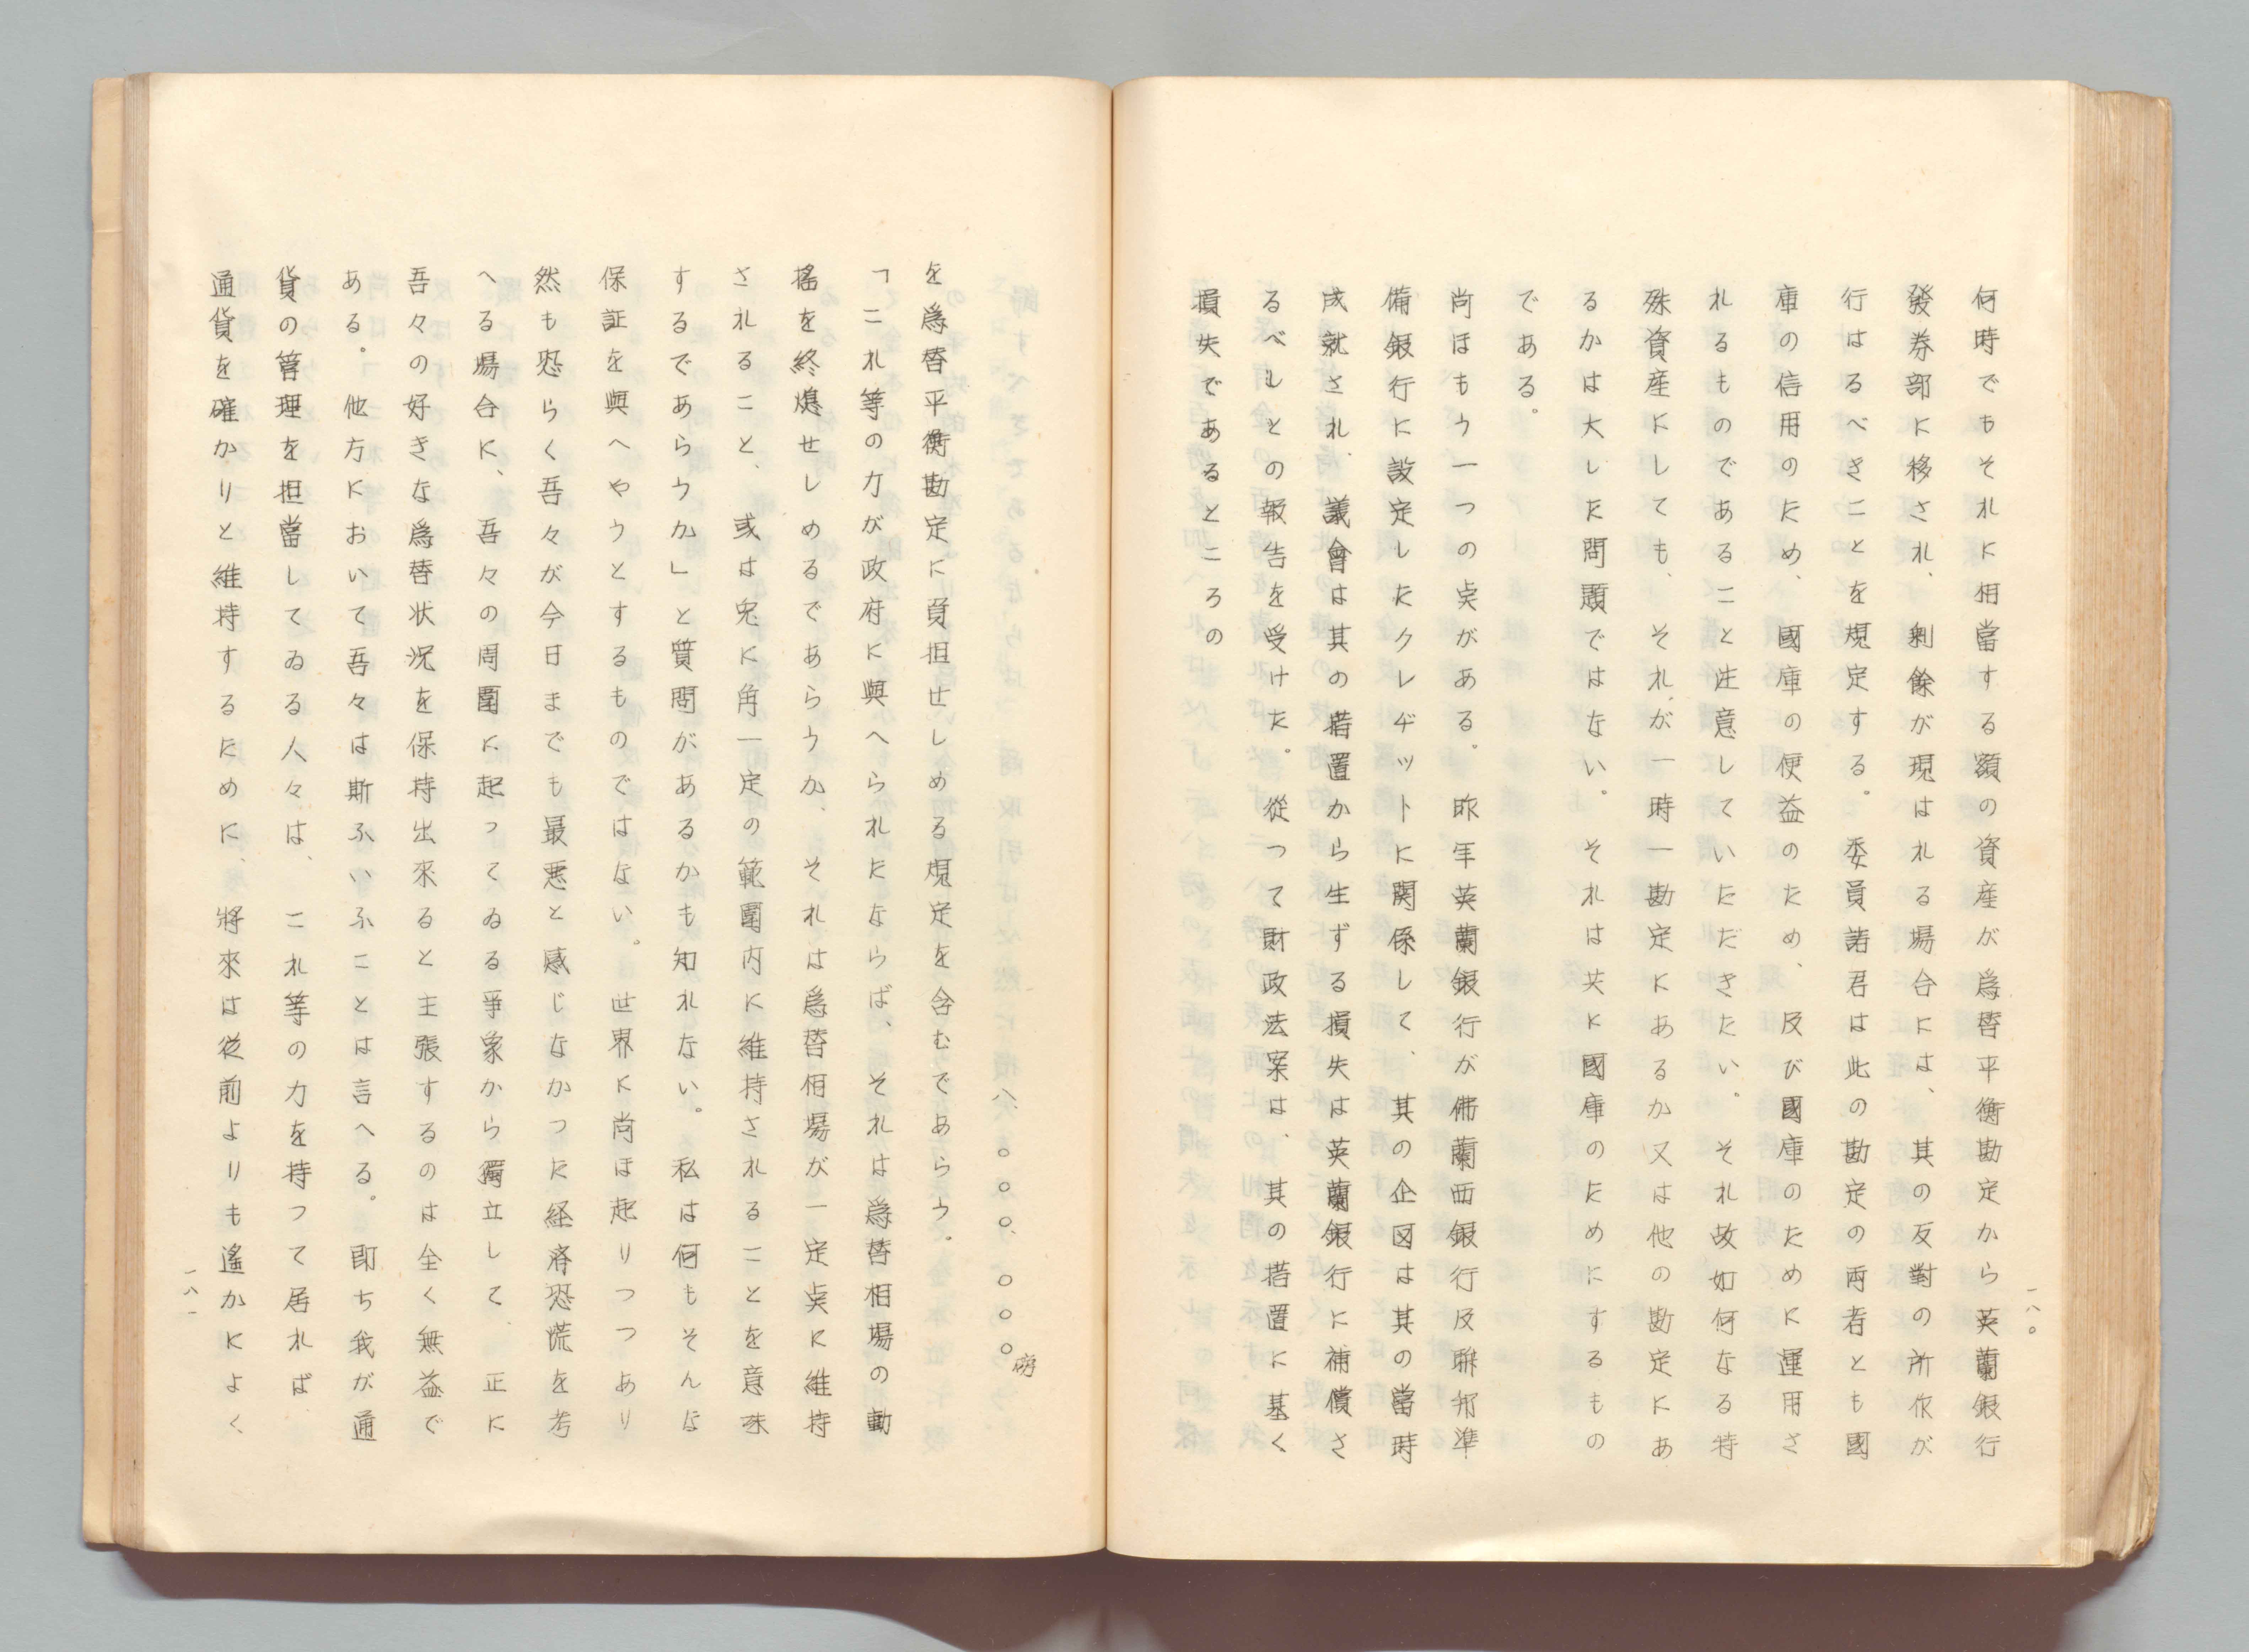 一八〇
何時でもそれに相當する額の資産が爲替平衡勘定から英蘭銀行
發券部に移され、剰餘が現はれる場合には、其の反對の所作が
行はるべきことを規定する。委員諸君は此の勘定の両者とも國
庫の信用のため、國庫の便益のため、及び國庫のために運用さ
れるものであること注意していただきたい。それ故如何なる特
殊資産にしても、それが一時一勘定にあるか又は他の勘定にあ
るかは大した問題ではない。それは共に國庫のためにするもの
である。
尚ほもう一つの点がある。昨年英蘭銀行が佛蘭西銀行及聯邦準
備銀行に設定したクレヂットに関係して、其の企図は其の當時
成就され、議會は其の措置から生ずる損失は英蘭銀行に補償さ
るべしとの報告を受けた。從つて財政法案は、其の措置に基く
損失であるところの
八、〇〇〇、〇〇〇磅
を爲替平衡勘定に負担せしめる規定を含むであらう。
「これ等の力が政府に與へられたならば、それは爲替相場の動
搖を終熄せしめるであらうか、それは爲替相場が一定点に維持
されること、或は兎に角一定の範圍内に維持されることを意味
するであらうか」と質問があるかも知れない。私は何もそんな
保証を與へやうとするものではない。世界に尚ほ起りつつあり
然も恐らく吾々が今日までも最悪と感じなかつた経済恐慌を考
へる場合に、吾々の周圍に起つてゐる事象から獨立して正に
吾々の好きな爲替状況を保持出來ると主張するのは全く無益で
ある。他方において吾々は斯ふいふことは言へる。即ち我が通
貨の管理を担當してゐる人々は、これ等の力を持つて居れば、
通貨を確かりと維持するために、將來は従前よりも遙かによく
一八一